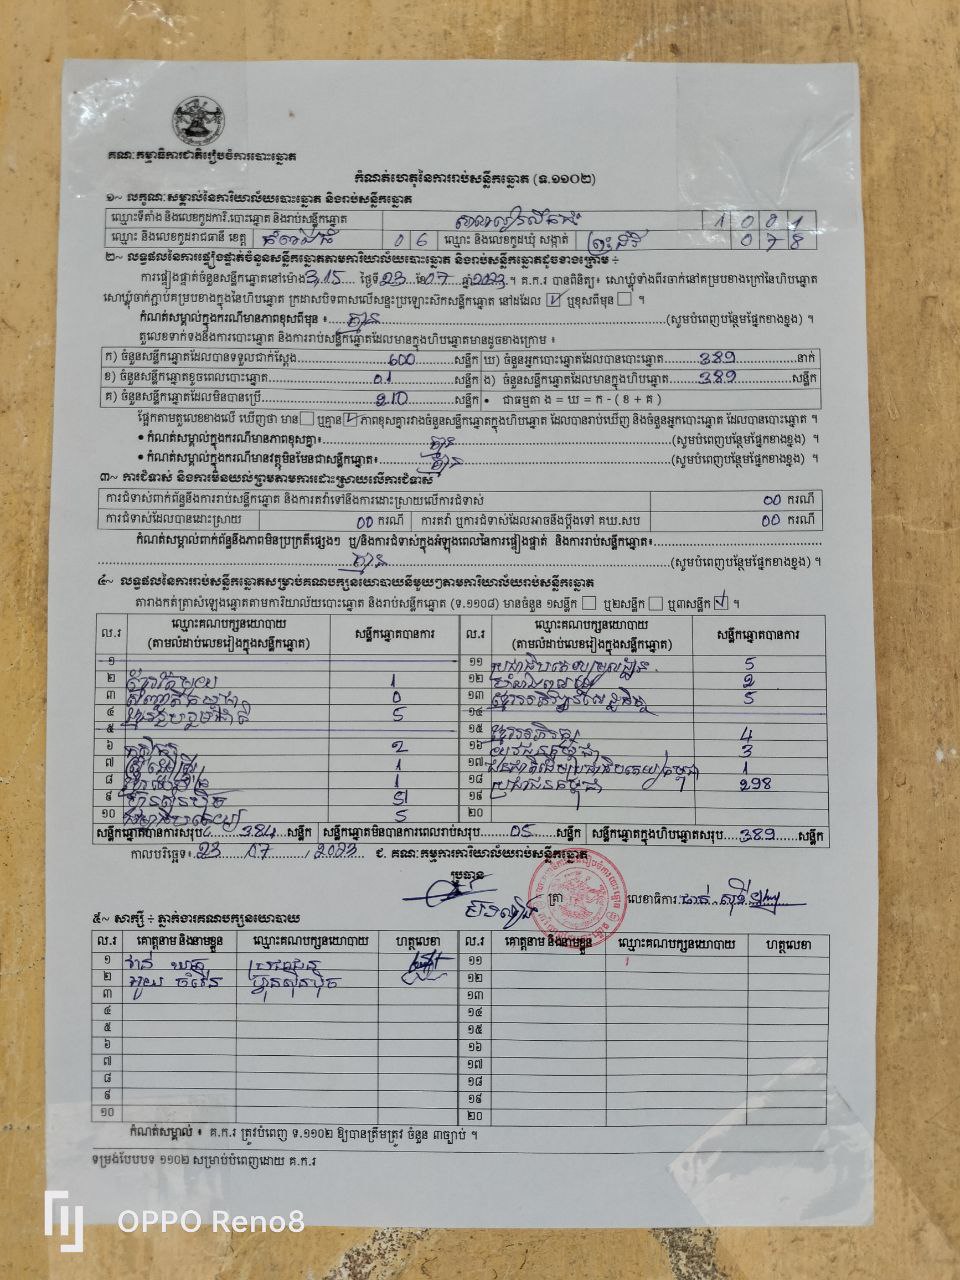 គណៈកម្មាធិការជាតិរៀបចំការបោះឆ្នោត
កំណត់ហេតុនៃការរាប់សន្លឹកឆ្នោត (ទ.១១០២)
១~ លក្ខណៈសម្គាល់នៃការិយាល័យបោះឆ្នោត និងរាប់សន្លឹកឆ្នោត
ឈ្មោះទីតាំង និងលេខកូដការិ.បោះឆ្នោត និងរាប់សន្លឹកឆ្នោត 1 0 0 1
ឈ្មោះ និងលេខកូដរាជធានី ខេត្ត កំពង់ធំ 0 6 ឈ្មោះ និងលេខកូដឃុំ សង្កាត់ 0 7 8
២~ លទ្ធផលនៃការផ្ទៀងផ្ទាត់ចំនួនសន្លឹកឆ្នោតតាមការិយាល័យបោះឆ្នោត និងរាប់សន្លឹកឆ្នោតដូចខាងក្រោម ÷
ការផ្ទៀងផ្ទាត់ចំនួនសន្លឹកឆ្នោតនៅម៉ោង 3,15 ថ្ងៃទី 23 ខែ 07 ឆ្នាំ 2023 ។ គ.ក.រ បានពិនិត្យ÷ សោឃ្លុំទាំងពីរចាក់នៅគម្របខាងក្រៅនៃហិបឆ្នោត
សោឃ្លុំចាក់ភ្ជាប់គម្របខាងក្នុងនៃហិបឆ្នោត ក្រដាសបិទពាសលើសន្ទះប្រឡោះស៊កសន្លឹកឆ្នោត នៅដដែល ☑ ឬខុសពីមុន ☐ ។
កំណត់សម្គាល់ក្នុងករណីមានភាពខុសពីមុន ៖ គ្មាន (សូមបំពេញបន្ថែមផ្នែកខាងខ្នង) ។
តួលេខទាក់ទងនឹងការបោះឆ្នោត និងការរាប់សន្លឹកឆ្នោតដែលមានក្នុងហិបឆ្នោតមានដូចខាងក្រោម ៖
ក) ចំនួនសន្លឹកឆ្នោតដែលបានទទួលជាក់ស្តែង 600 សន្លឹក ឃ) ចំនួនអ្នកបោះឆ្នោតដែលបានបោះឆ្នោត 389 នាក់
ខ) ចំនួនសន្លឹកឆ្នោតខូចពេលបោះឆ្នោត 01 សន្លឹក ង) ចំនួនសន្លឹកឆ្នោតដែលមានក្នុងហិបឆ្នោត 389 សន្លឹក
គ) ចំនួនសន្លឹកឆ្នោតដែលមិនបានប្រើ 210 សន្លឹក • ជាធម្មតា ង = ឃ = ក - ( ខ + គ )
ផ្អែកតាមតួលេខខាងលើ ឃើញថា មាន ☐ ឬគ្មាន ☑ ភាពខុសគ្នារវាងចំនួនសន្លឹកឆ្នោតក្នុងហិបឆ្នោត ដែលបានរាប់ឃើញ និងចំនួនអ្នកបោះឆ្នោត ដែលបានបោះឆ្នោត ។
• កំណត់សម្គាល់ក្នុងករណីមានភាពខុសគ្នា៖ គ្មាន (សូមបំពេញបន្ថែមផ្នែកខាងខ្នង) ។
• កំណត់សម្គាល់ក្នុងករណីមានវត្ថុមិនមែនជាសន្លឹកឆ្នោត៖ គ្មាន (សូមបំពេញបន្ថែមផ្នែកខាងខ្នង) ។
៣~ ការជំទាស់ និងការមិនយល់ព្រមតាមការដោះស្រាយលើការជំទាស់
ការជំទាស់ពាក់ព័ន្ធនឹងការរាប់សន្លឹកឆ្នោត និងការតវ៉ាទៅនឹងការដោះស្រាយលើការជំទាស់ 00 ករណី
ការជំទាស់ដែលបានដោះស្រាយ 00 ករណី ការតវ៉ា ឬការជំទាស់ដែលអាចនឹងប្តឹងទៅ គឃ.សប 00 ករណី
កំណត់សម្គាល់ពាក់ព័ន្ធនឹងភាពមិនប្រក្រតីផ្សេងៗ ឬ/និងការជំទាស់ក្នុងអំឡុងពេលនៃការផ្ទៀងផ្ទាត់ និងការរាប់សន្លឹកឆ្នោត៖
គ្មាន (សូមបំពេញបន្ថែមផ្នែកខាងខ្នង) ។
៤~ លទ្ធផលនៃការរាប់សន្លឹកឆ្នោតសម្រាប់គណបក្សនយោបាយនីមួយៗតាមការិយាល័យរាប់សន្លឹកឆ្នោត
តារាងកត់ត្រាសំឡេងឆ្នោតតាមការិយាល័យបោះឆ្នោត និងរាប់សន្លឹកឆ្នោត (ទ.១១០៨) មានចំនួន ១សន្លឹក ☐ ឬ២សន្លឹក ☐ ឬ៣សន្លឹក ☑ ។
ល.រ ឈ្មោះគណបក្សនយោបាយ (តាមលំដាប់លេខរៀងក្នុងសន្លឹកឆ្នោត) សន្លឹកឆ្នោតបានការ ល.រ ឈ្មោះគណបក្សនយោបាយ (តាមលំដាប់លេខរៀងក្នុងសន្លឹកឆ្នោត) សន្លឹកឆ្នោតបានការ
១ ១១ 5
២ 1 ១២ 2
៣ 0 ១៣ 5
៤ 5 ១៤
៥ ១៥ 4
៦ 2 ១៦ យុវជនកម្ពុជា 3
៧ 1 ១៧ 1
៨ 1 ១៨ ប្រជាជនកម្ពុជា 298
៩ ហ្វ៊ុនស៊ិនប៉ិច 51 ១៩
១០ 5 ២០
សន្លឹកឆ្នោតបានការសរុប 384 សន្លឹក សន្លឹកឆ្នោតមិនបានការពេលរាប់សរុប 05 សន្លឹក សន្លឹកឆ្នោតក្នុងហិបឆ្នោតសរុប 389 សន្លឹក
កាលបរិច្ឆេទ៖ 23 / 07 / 2023 ជ. គណៈកម្មការការិយាល័យរាប់សន្លឹកឆ្នោត
ប្រធាន
ត្រា លេខាធិការ:
៥~ សាក្សី ÷ ភ្នាក់ងារគណបក្សនយោបាយ
ល.រ គោត្តនាម និងនាមខ្លួន ឈ្មោះគណបក្សនយោបាយ ហត្ថលេខា ល.រ គោត្តនាម និងនាមខ្លួន ឈ្មោះគណបក្សនយោបាយ ហត្ថលេខា
១ ប្រជាជន ១១
២ ហ្វ៊ុនស៊ិនប៉ិច ១២
៣ ១៣
៤ ១៤
៥ ១៥
៦ ១៦
៧ ១៧
៨ ១៨
៩ ១៩
១០ ២០
កំណត់សម្គាល់ ៖ គ.ក.រ ត្រូវបំពេញ ទ.១១០២ ឱ្យបានត្រឹមត្រូវ ចំនួន ៣ច្បាប់ ។
ទម្រង់បែបបទ ១១០២ សម្រាប់បំពេញដោយ គ.ក.រ
OPPO Reno8